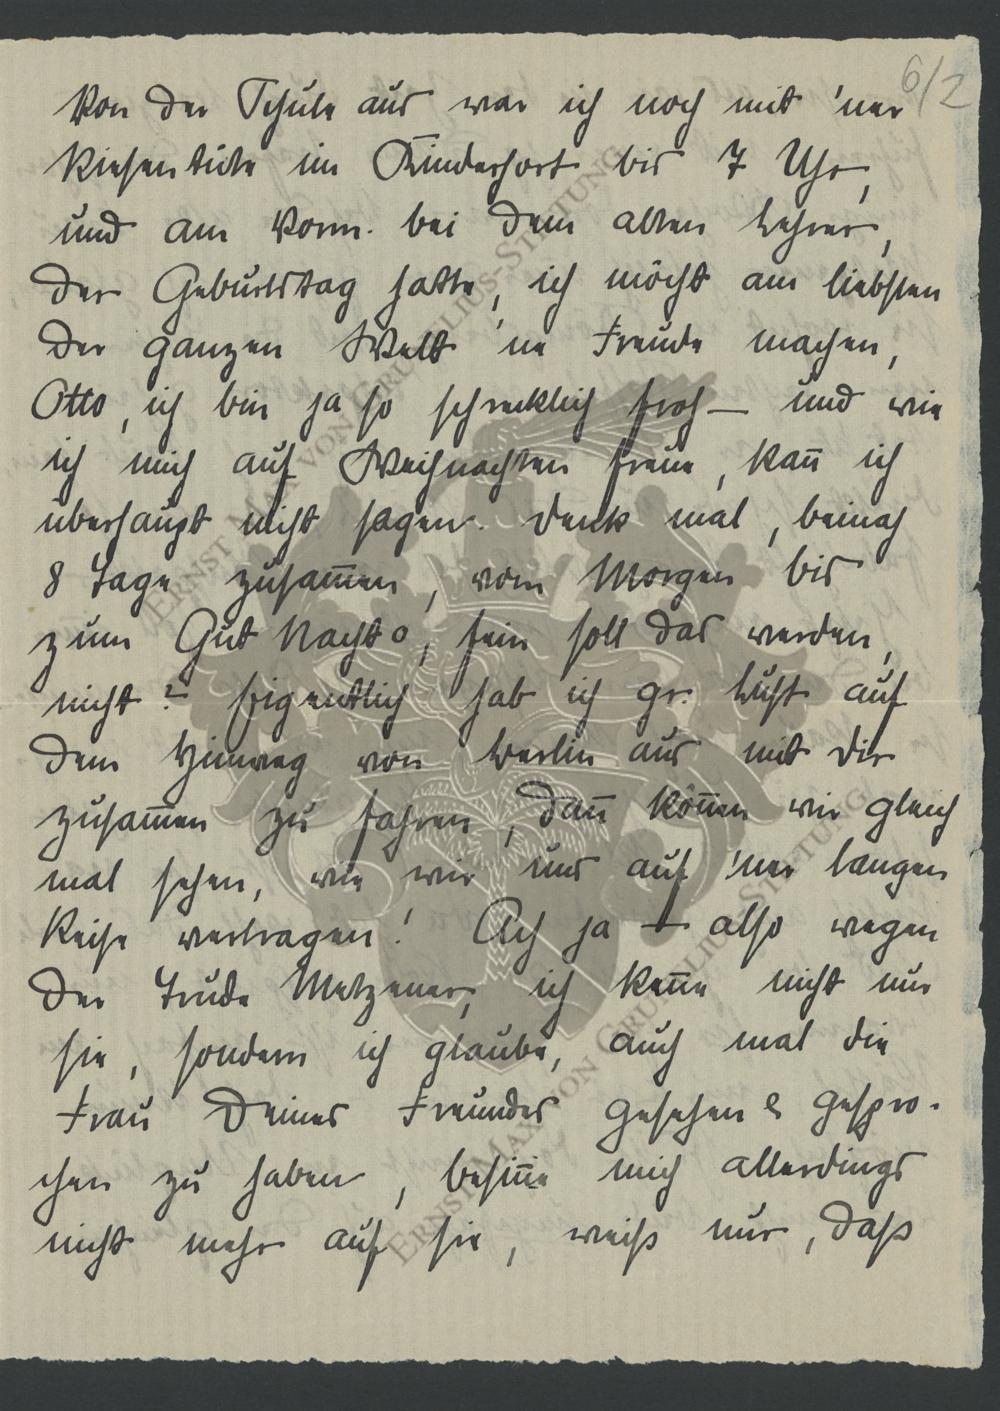 6/2
Von der Schule aus war ich noch mit 'ner
Riesentüte im Kinderhort bis 7 Uhr,
und am Vorm. bei dem alten Lehrer,
der Geburtstag hatte, ich möcht am liebsten
der ganzen Welt 'ne Freude machen,
Otto, ich bin ja so schrecklich froh – und wie
ich mich auf Weihnachten freue, kañ ich
überhaupt nicht sagen. Denk mal, beinah
8 Tage zusam̅en, vom Morgen bis
zum Gut Nacht, fein soll das werden,
nicht? Eigentlich hab ich gr. Lust auf
dem Hinweg von Berlin aus mit Dir
zusam̅en zu fahren, dan̅ kön̅en wir gleich
mal sehen, wie wir uns auf 'ner langen
Reise vertragen! Ach ja – also wegen
der Trude Metzener, ich ken̅e nicht nur
sie, sondern ich glaube, auch mal die
Frau Deines Freundes gesehen & gespro-
chen zu haben, besin̅e mich allerdings
nicht mehr auf sie, weiß nur, daß
ERNST-MAX VON GRUNELIUS-STIFTUNG
ERNST-MAX VON GRUNELIUS-STIFTUNG